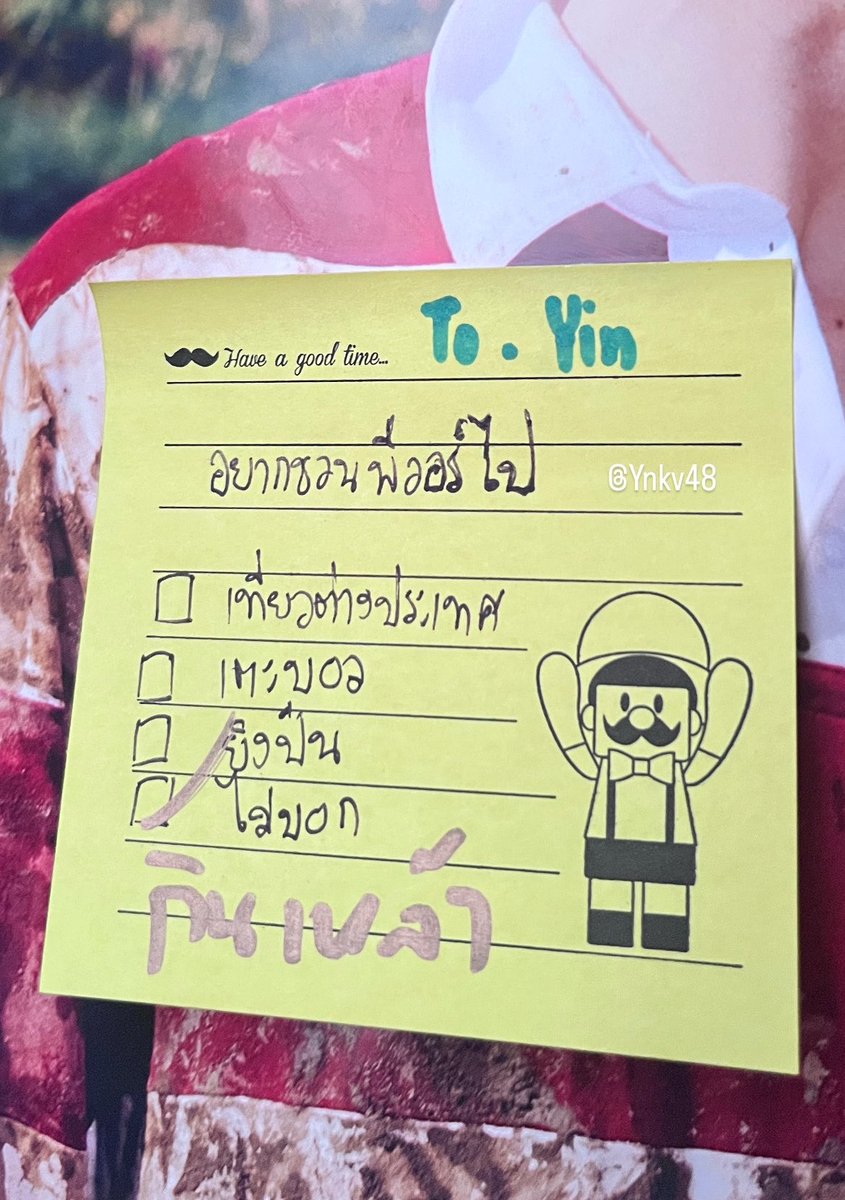 Have a good time... To. Yin
อยากชวนพี่วอร์ไป
@Ynkv48
เที่ยวต่างประเทศ
เตะบอล
ยิงปืน
ไม่บอก
กินเหล้า